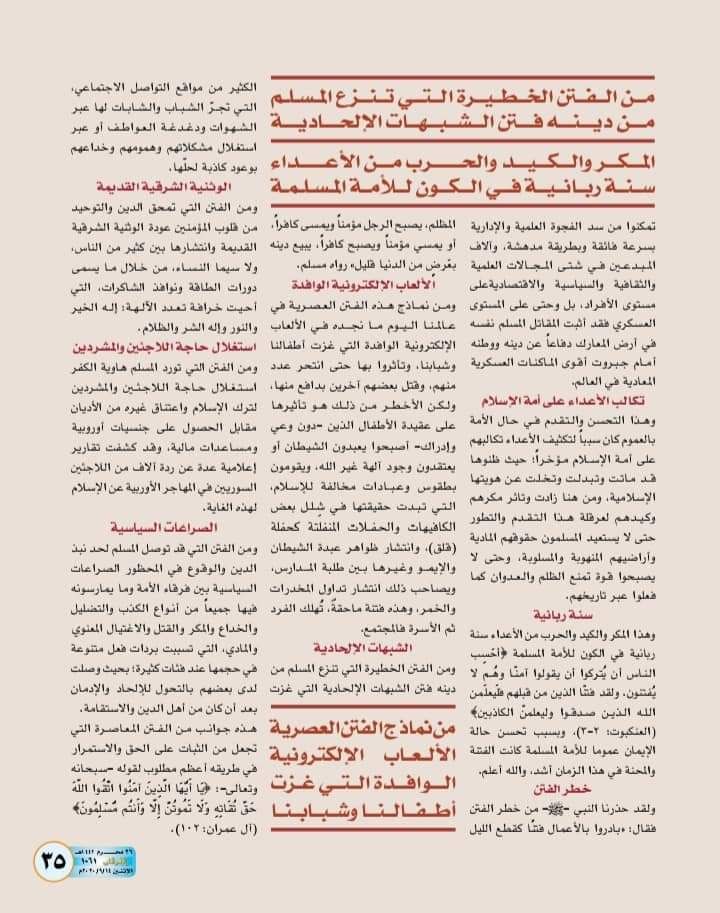 من الفتن الخطيرة التي تنزع المسلم
من دينه فتن الشبهات الإلحادية
المكر والكيد والحرب من الأعداء
سنة ربانية في الكون للأمة المسلمة
تمكنوا من سد الفجوة العلمية والإدارية
بسرعة فائقة وبطريقة مدهشة، وآلاف
المبدعين في شتى المجالات العلمية
والثقافية والسياسية والاقتصاديةعلى
مستوى الأفراد، بل وحتى على المستوى
العسكري فقد أثبت المقاتل المسلم نفسه
في أرض المعارك دفاعاً عن دينه ووطنه
أمام جبروت أقوى الماكنات العسكرية
المعادية في العالم.
تكالب الأعداء على أمة الإسلام
وهذا التحسن والتقدم في حال الأمة
بالعموم كان سبباً لتكثيف الأعداء تكالبهم
على أمة الإسلام مؤخراً؛ حيث ظنوها
قد ماتت وتبدلت وتخلت عن هويتها
الإسلامية، ومن هنا زادت وتاثر مكرهم
وكيدهم لعرقلة هذا التقدم والتطور
حتى لا يستعيد المسلمون حقوقهم المادية
وأراضيهم المنهوبة والمسلوبة، وحتى لا
يصبحوا قوة تمنع الظلم والعدوان كما
فعلوا عبر تاريخهم.
سنة ربانية
وهذا المكر والكيد والحرب من الأعداء سنة
ربانية في الكون للأمة المسلمة ﴿أحْسِب
الناس أن يُتركوا أن يقولوا آمنّا وهُم لا
يُفتنون، ولقد فتنّا الذين من قبلهم فليعلَمن
الله الذين صدقوا وليعلمنّ الكاذبين﴾
(العنكبوت: ٢-٣)، وبسبب تحسن حالة
الإيمان عموما للأمة المسلمة كانت الفتنة
والمحنة في هذا الزمان أشد، والله أعلم.
خطر الفتن
ولقد حذرنا النبي -ﷺ- من خطر الفتن
فقال: «بادروا بالأعمال فتنًا كقطع الليل
المظلم، يصبح الرجل مؤمناً ويمسى كافراً،
أو يمسي مؤمناً ويصبح كافراً، يبيع دينه
بعَرض من الدنيا قليل» رواه مسلم.
الألعاب الإلكترونية الوافدة
ومن نماذج هذه الفتن العصرية في
عالمنا اليوم ما نجده في الألعاب
الإلكترونية الوافدة التي غزت أطفالنا
وشبابنا، وتأثروا بها حتى انتحر عدد
منهم، وقتل بعضهم آخرين بدافع منها،
ولكن الأخطر من ذلك هو تأثيرها
على عقيدة الأطفال الذين -دون وعي
وإدراك- أصبحوا يعبدون الشيطان أو
يعتقدون وجود آلهة غير الله، ويقومون
بطقوس وعبادات مخالفة للإسلام،
التي تبدت حقيقتها في شِلل بعض
الكافيهات والحفلات المنفلتة كحفلة
(قلق)، وانتشار ظواهر عبدة الشيطان
والإيمو وغيرها بين طلبة المدارس،
ويصاحب ذلك انتشار تداول المخدرات
والخمر، وهذه فتنة ماحقةٌ، تُهلك الفرد
ثم الأسرة فالمجتمع.
الشبهات الإلحادية
ومن الفتن الخطيرة التي تنزع المسلم من
دينه فتن الشبهات الإلحادية التي غزت
من نماذج الفتن العصرية
الألعاب الإلكترونية
الوافدة التي غزت
أطفالنا وشبابنا
الكثير من مواقع التواصل الاجتماعي،
التي تجرّ الشباب والشابات لها عبر
الشهوات ودغدغة العواطف أو عبر
استغلال مشكلاتهم وهمومهم وخداعهم
بوعود كاذبة لحلّها.
الوثنية الشرقية القديمة
ومن الفتن التي تمحق الدين والتوحيد
من قلوب المؤمنين عودة الوثنية الشرقية
القديمة وانتشارها بين كثير من الناس،
ولا سيما النساء، من خلال ما يسمى
دورات الطاقة ونوافذ الشاكرات، التي
أحيت خرافة تعدد الآلهة؛ إله الخير
والنور وإله الشر والظلام.
استغلال حاجة اللاجئين والمشردين
ومن الفتن التي تورد المسلم هاوية الكفر
استغلال حاجة اللاجئين والمشردين
لترك الإسلام واعتناق غيره من الأديان
مقابل الحصول على جنسيات أوروبية
ومساعدات مالية، وقد كشفت تقارير
إعلامية عدة عن ردة آلاف من اللاجئين
السوريين في المهاجر الأوربية عن الإسلام
لهذه الغاية.
الصراعات السياسية
ومن الفتن التي قد توصل المسلم لحد نبذ
الدين والوقوع في المحظور الصراعات
السياسية بين فرقاء الأمة وما يمارسونه
فيها جميعاً من أنواع الكذب والتضليل
والخداع والمكر والقتل والاغتيال المعنوي
والمادي، التي تسببت بردات فعل متنوعة
في حجمها عند فئات كثيرة؛ بحيث وصلت
لدى بعضهم بالتحول للإلحاد والإدمان
بعد أن كان من أهل الدين والاستقامة.
هذه جوانب من الفتن المعاصرة التي
تجعل من الثبات على الحق والاستمرار
في طريقه أعظم مطلوب لقوله -سبحانه
وتعالى-: ﴿يَا أَيُّهَا الَّذِينَ آمَنُوا اتَّقُوا اللَّهَ
حَقَّ تُقَاتِهِ وَلَا تَمُوتُنَّ إِلَّا وَأَنتُم مُّسْلِمُونَ﴾
(آل عمران: ١٠٢).
٢٦ محرم ١٤٤٢هـ
الفرقان ١٠٦١
الاثنين ٢٠٢٠/٩/١٤م
٣٥